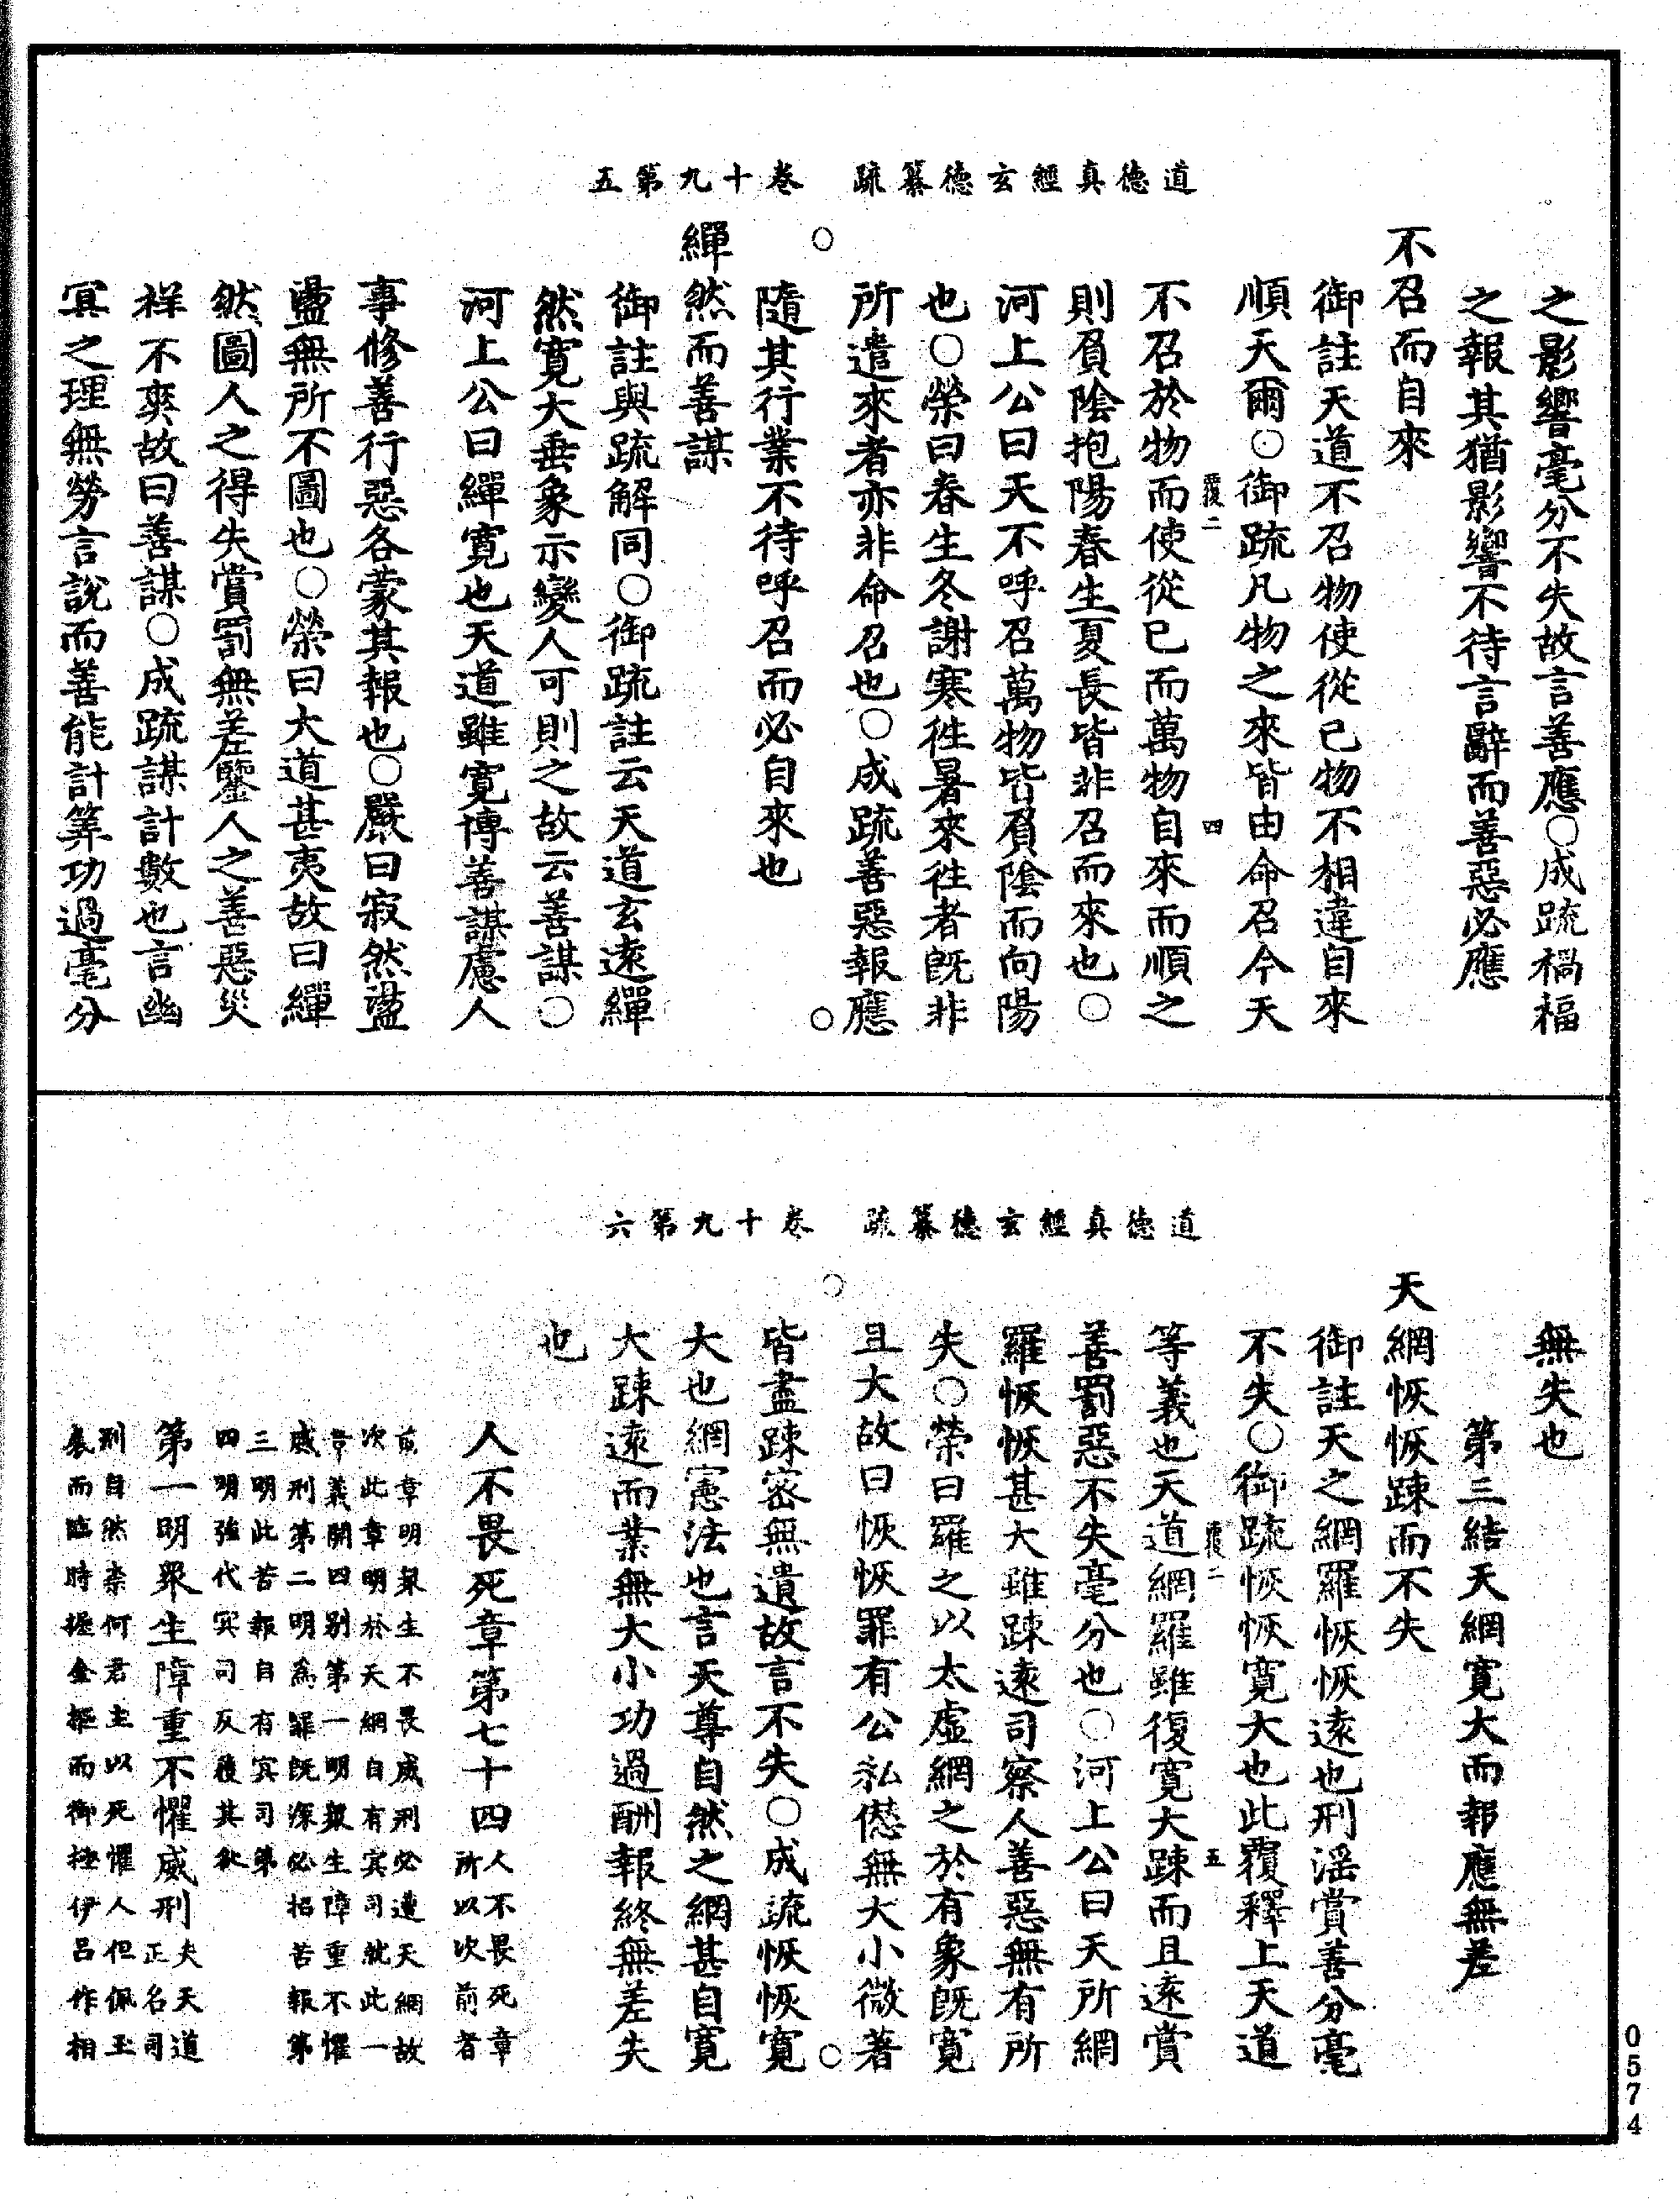 道德真經玄德纂疏　卷十九第五
之影響毫分不失故言善應○成疏禍福
之報其猶影響不待言辭而善惡必應
不召而自來
御註天道不召物使從己物不相違自來
順天爾○御疏凡物之來皆由命召今天
覆二　四
不召於物而使從已而萬物自來而順之
則負陰抱陽春生夏長皆非召而來也○
河上公曰天不呼召萬物皆負陰而向陽
也○榮曰春生冬謝寒徃暑來徃者旣非
所遣來者亦非命召也○成疏善惡報應
隨其行業不待呼召而必自來也
繟然而善謀
御註與疏解同○御疏註云天道玄遠繟
然寬大垂象示變人可則之故云善謀○
河上公曰繟寬也天道雖寬博善謀慮人
事修善行惡各蒙其報也○嚴曰寂然蕩
蕩無所不圖也○榮曰大道甚夷故曰繟
然圖人之得失賞罰無差鑒人之善惡災
祥不爽故曰善謀○成疏謀計數也言幽
冥之理無勞言說而善能計筭功過毫分
道德真經玄德纂疏　卷十九第六
無失也
第三結天網寬大而報應無差
天網恢恢踈而不失
御註天之網羅恢恢遠也刑滛賞善分毫
不失○御疏恢恢寬大也此覆釋上天道
覆二　五
等義也天道網羅雖復寬大踈而且遠賞
善罰惡不失毫分也○河上公曰天所網
羅恢恢甚大雖踈遠司察人善惡無有所
失○榮曰羅之以太虛網之於有象旣寬
且大故曰恢恢罪有公私僁無大小微著
皆盡踈密無遺故言不失○成疏恢恢寬
大也網憲法也言天尊自然之網甚自寬
大踈遠而業無大小功過酬報終無差失
也
人不畏死章第七十四人不畏死章所以次前者
前章明衆生不畏威刑必遭天網故
次此章明於天網自有冥司就此一
章義開四別第一明衆生障重不懼
威刑第二明爲罪旣深必招苦報第
三明此苦報自有冥司第
四明強代冥司反獲其秋
第一明衆生障重不懼威刑夫天道正名司
刑自然柰何君主以死懼人但佩玉
扆而臨時握金樞而御極伊呂作相
0574